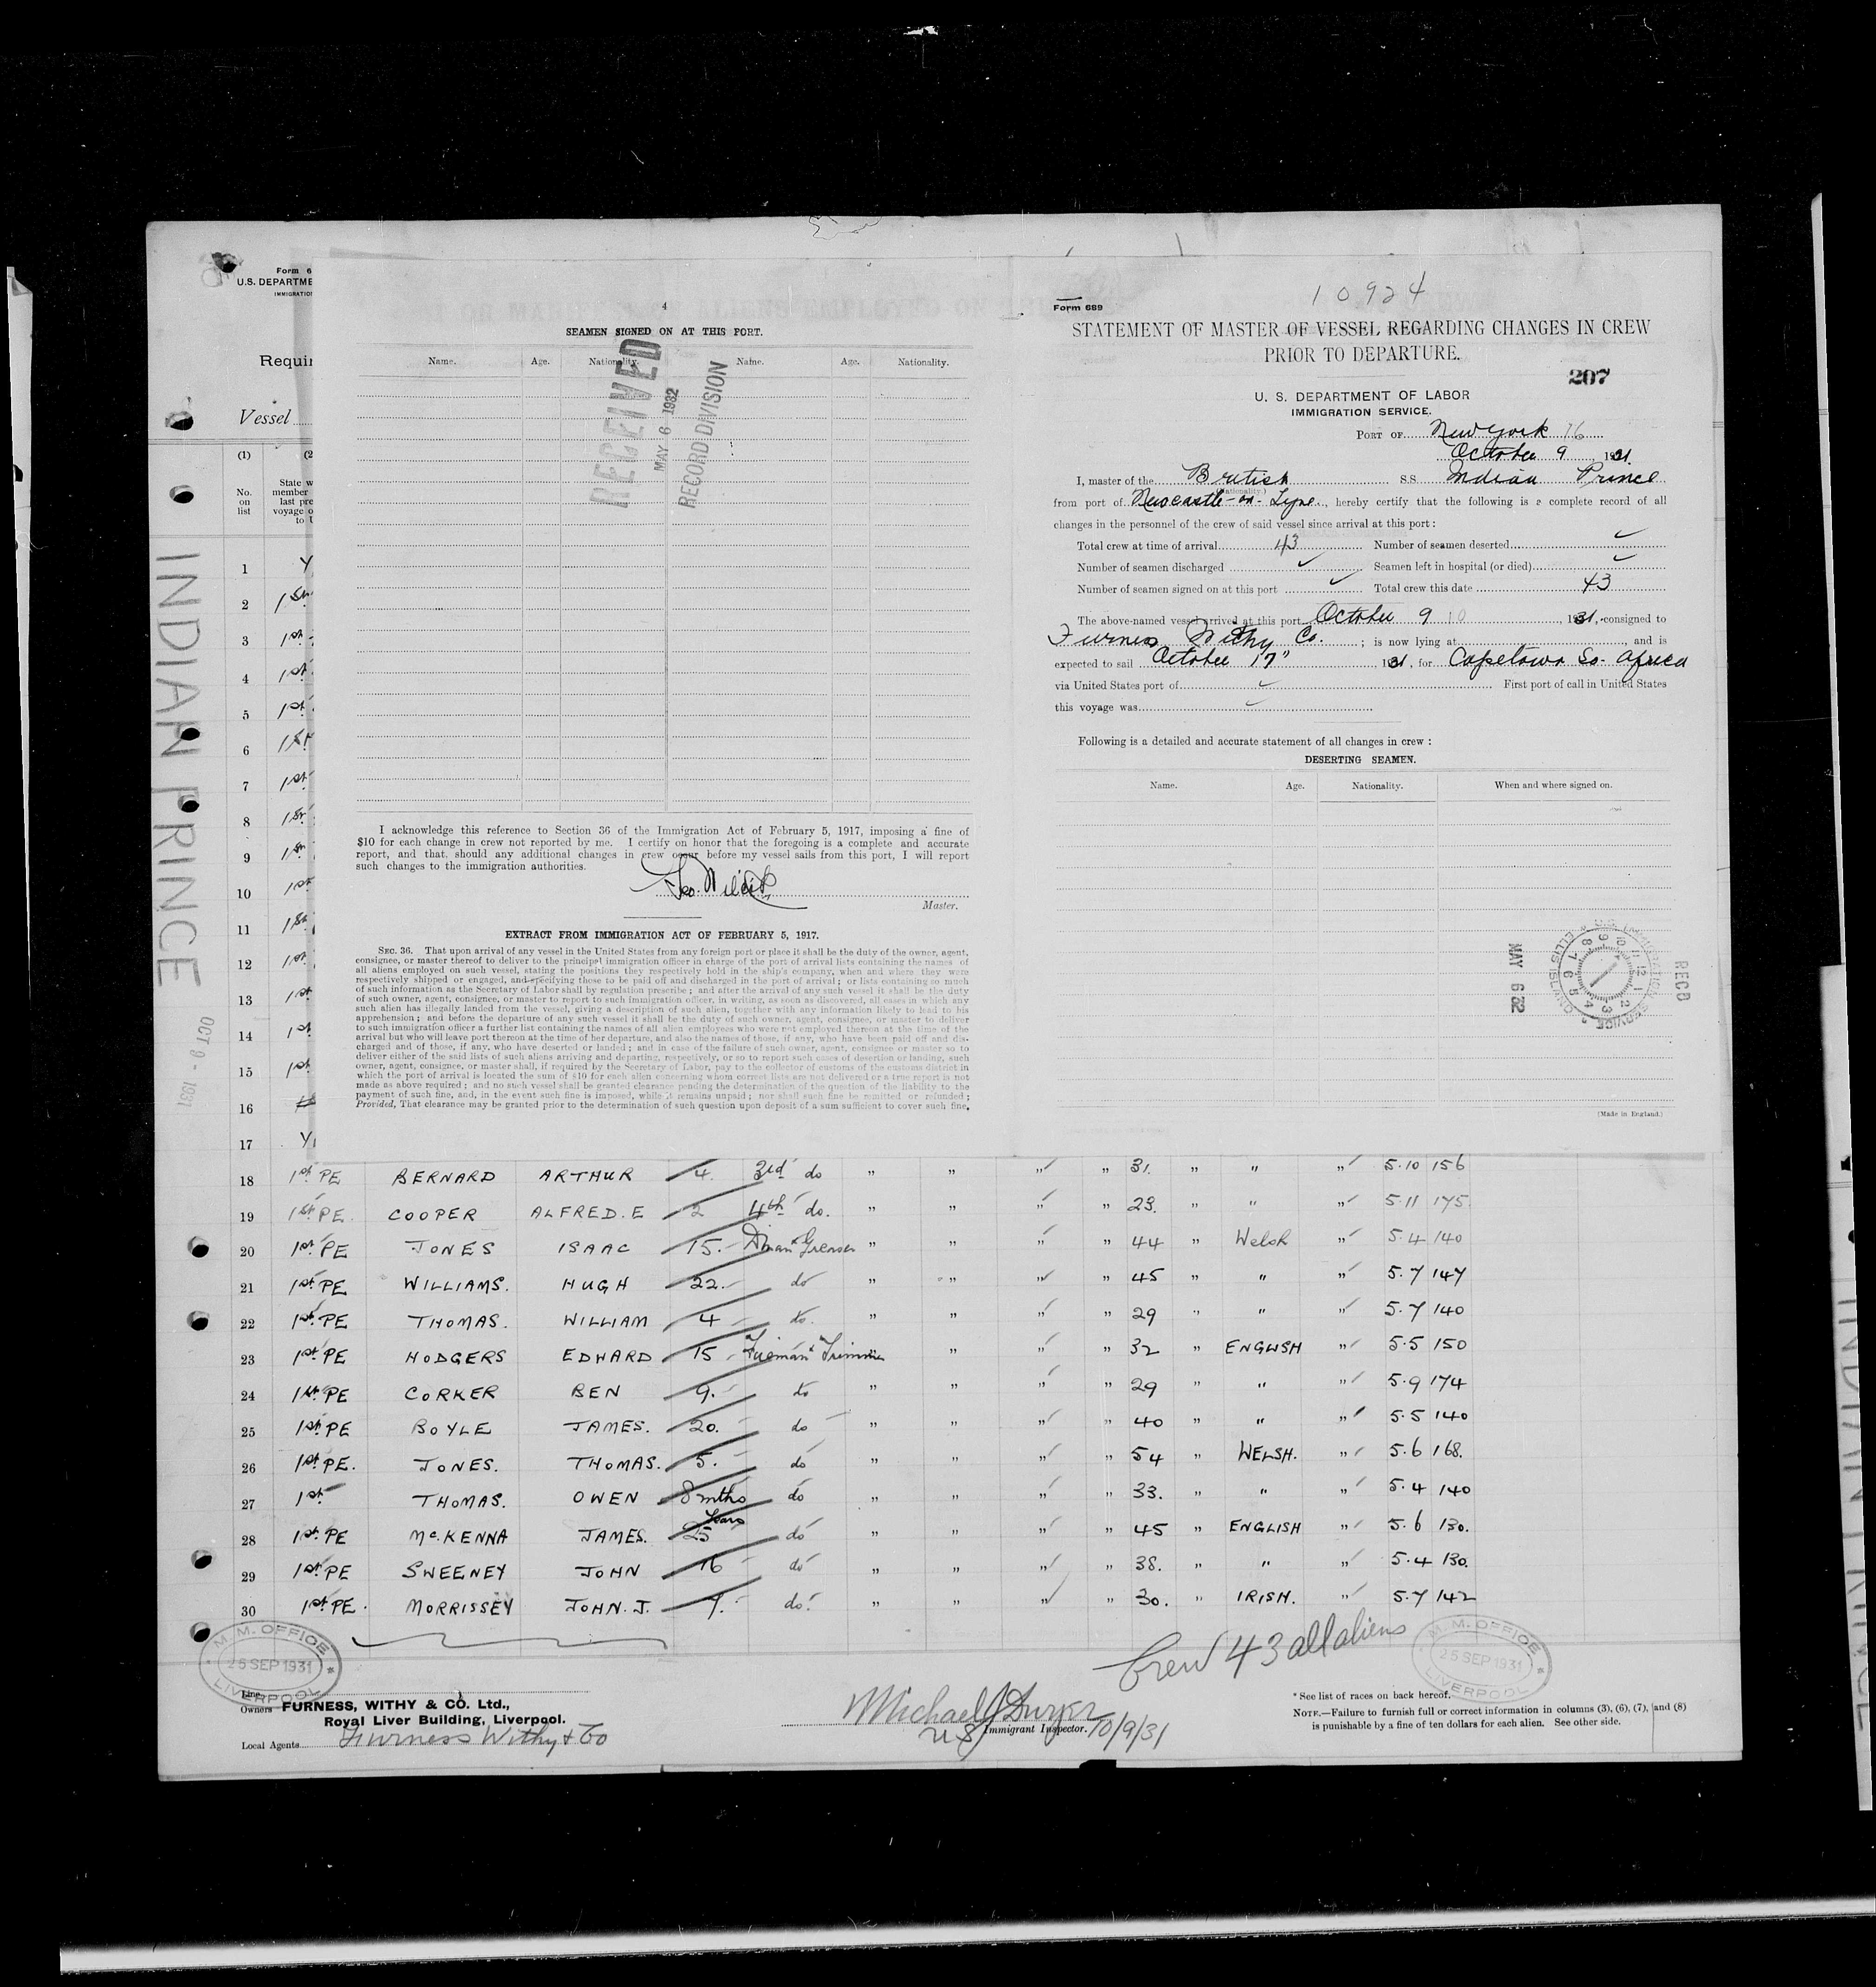 Form 6
U.S. DEPARTME
IMMIGRATIO
Requir
Vessel
(1)
(2
No.
on
list
State w
member
last pre
voyage o
to U
INDIAN PRINCE
OCT 9 - 1931
1 Y
2 1st
3 1st
4 1st
5 1st
6 1st
7 1st
8 1st
9 1st
10 1st
11 1st
12 1st
13 1st
14 1st
15 1st
16
17 Y
4
SEAMEN SIGNED ON AT THIS PORT.
Name. Age. Nationality. Name. Age. Nationality.
RECEIVED
MAY 6 1932
RECORD DIVISION
I acknowledge this reference to Section 36 of the Immigration Act of February 5, 1917, imposing a fine of
$10 for each change in crew not reported by me. I certify on honor that the foregoing is a complete and accurate
report, and that, should any additional changes in crew occur before my vessel sails from this port, I will report
such changes to the immigration authorities.
Geo.
Master.
EXTRACT FROM IMMIGRATION ACT OF FEBRUARY 5, 1917.
SEC. 36. That upon arrival of any vessel in the United States from any foreign port or place it shall be the duty of the owner, agent,
consignee, or master thereof to deliver to the principal immigration officer in charge of the port of arrival lists containing the names of
all aliens employed on such vessel, stating the positions they respectively hold in the ship's company, when and where they were
respectively shipped or engaged, and specifying those to be paid off and discharged in the port of arrival; or lists containing so much
of such information as the Secretary of Labor shall by regulation prescribe; and after the arrival of any such vessel it shall be the duty
of such owner, agent, consignee, or master to report to such immigration officer, in writing, as soon as discovered, all cases in which any
such alien has illegally landed from the vessel, giving a description of such alien, together with any information likely to lead to his
apprehension; and before the departure of any such vessel it shall be the duty of such owner, agent, consignee, or master to deliver
to such immigration officer a further list containing the names of all alien employees who were not employed thereon at the time of the
arrival but who will leave port thereon at the time of her departure, and also the names of those, if any, who have been paid off and dis-
charged and of those, if any, who have deserted or landed; and in case of the failure of such owner, agent, consignee or master so to
deliver either of the said lists of such aliens arriving and departing, respectively, or so to report such cases of desertion or landing, such
owner, agent, consignee, or master shall, if required by the Secretary of Labor, pay to the collector of customs of the customs district in
which the port of arrival is located the sum of $10 for each alien concerning whom correct lists are not delivered or a true report is not
made as above required; and no such vessel shall be granted clearance pending the determination of the question of the liability to the
payment of such fine, and, in the event such fine is imposed, while it remains unpaid; nor shall such fine be remitted or refunded;
Provided, That clearance may be granted prior to the determination of such question upon deposit of a sum sufficient to cover such fine.
10924
Form 689
STATEMENT OF MASTER OF VESSEL REGARDING CHANGES IN CREW
PRIOR TO DEPARTURE.
207
U. S. DEPARTMENT OF LABOR
IMMIGRATION SERVICE.
PORT OF New York 76
October 9, 1931.
I, master of the British S.S. Indian Prince
(Nationality.)
from port of Newcastle-on-Tyne, hereby certify that the following is a complete record of all
changes in the personnel of the crew of said vessel since arrival at this port:
Total crew at time of arrival 43 Number of seamen deserted ✓
Number of seamen discharged ✓ Seamen left in hospital (or died) ✓
Number of seamen signed on at this port ✓ Total crew this date 43
The above-named vessel arrived at this port October 9 10, 1931, consigned to
Furness Withy Co.; is now lying at, and is
expected to sail October 17" 1931, for Capetown So. Africa
via United States port of ✓ First port of call in United States
this voyage was ✓
Following is a detailed and accurate statement of all changes in crew:
DESERTING SEAMEN.
Name. Age. Nationality. When and where signed on.
MAY 6 32
U.S. IMMIGRATION SERVICE ELLIS ISLAND
REC'D
(Made in England.)
18 1st PE BERNARD ARTHUR 4. 3rd do " " "✓ " 31. " " "✓ 5.10 156
19 1st PE. COOPER ALFRED.E 2 4th do. " " "✓ " 23. " " "✓ 5.11 175.
20 1st PE JONES ISAAC 15. D'man & Greaser " " "✓ " 44 " Welsh "✓ 5.4 140
21 1st PE WILLIAMS. HUGH 22. do " " "✓ " 45 " " "✓ 5.7 147
22 1st PE THOMAS. WILLIAM 4 do. " " "✓ " 29 " " "✓ 5.7 140
23 1st PE HODGERS EDWARD 15 Fireman & Trimmer " "✓ " 32 " ENGLISH "✓ 5.5 150
24 1st PE CORKER BEN 9. do " " "✓ " 29 " " "✓ 5.9 174
25 1st PE BOYLE JAMES. 20. do " " "✓ " 40 " " "✓ 5.5 140
26 1st PE. JONES. THOMAS. 5. do " " "✓ " 54 " WELSH. "✓ 5.6 168.
27 1st THOMAS. OWEN 8 mths do " " "✓ " 33. " " "✓ 5.4 140
28 1st PE McKENNA JAMES. 25 Years do " " "✓ " 45 " ENGLISH "✓ 5.6 130.
29 1st PE SWEENEY JOHN 16 do " " "✓ " 38. " " "✓ 5.4 130.
30 1st PE. MORRISSEY JOHN.J. 7. do. " " "✓ " 30. " IRISH. "✓ 5.7 142
M.M. OFFICE
25 SEP 1931
LIVERPOOL
Crew 43 all aliens
M.M. OFFICE
25 SEP 1931
LIVERPOOL
Line
Owners FURNESS, WITHY & CO. Ltd.,
Royal Liver Building, Liverpool.
Local Agents Furness Withy & Co
Michael J Dwyer
US Immigrant Inspector. 10/9/31
* See list of races on back hereof.
NOTE.—Failure to furnish full or correct information in columns (3), (6), (7), and (8)
is punishable by a fine of ten dollars for each alien. See other side.